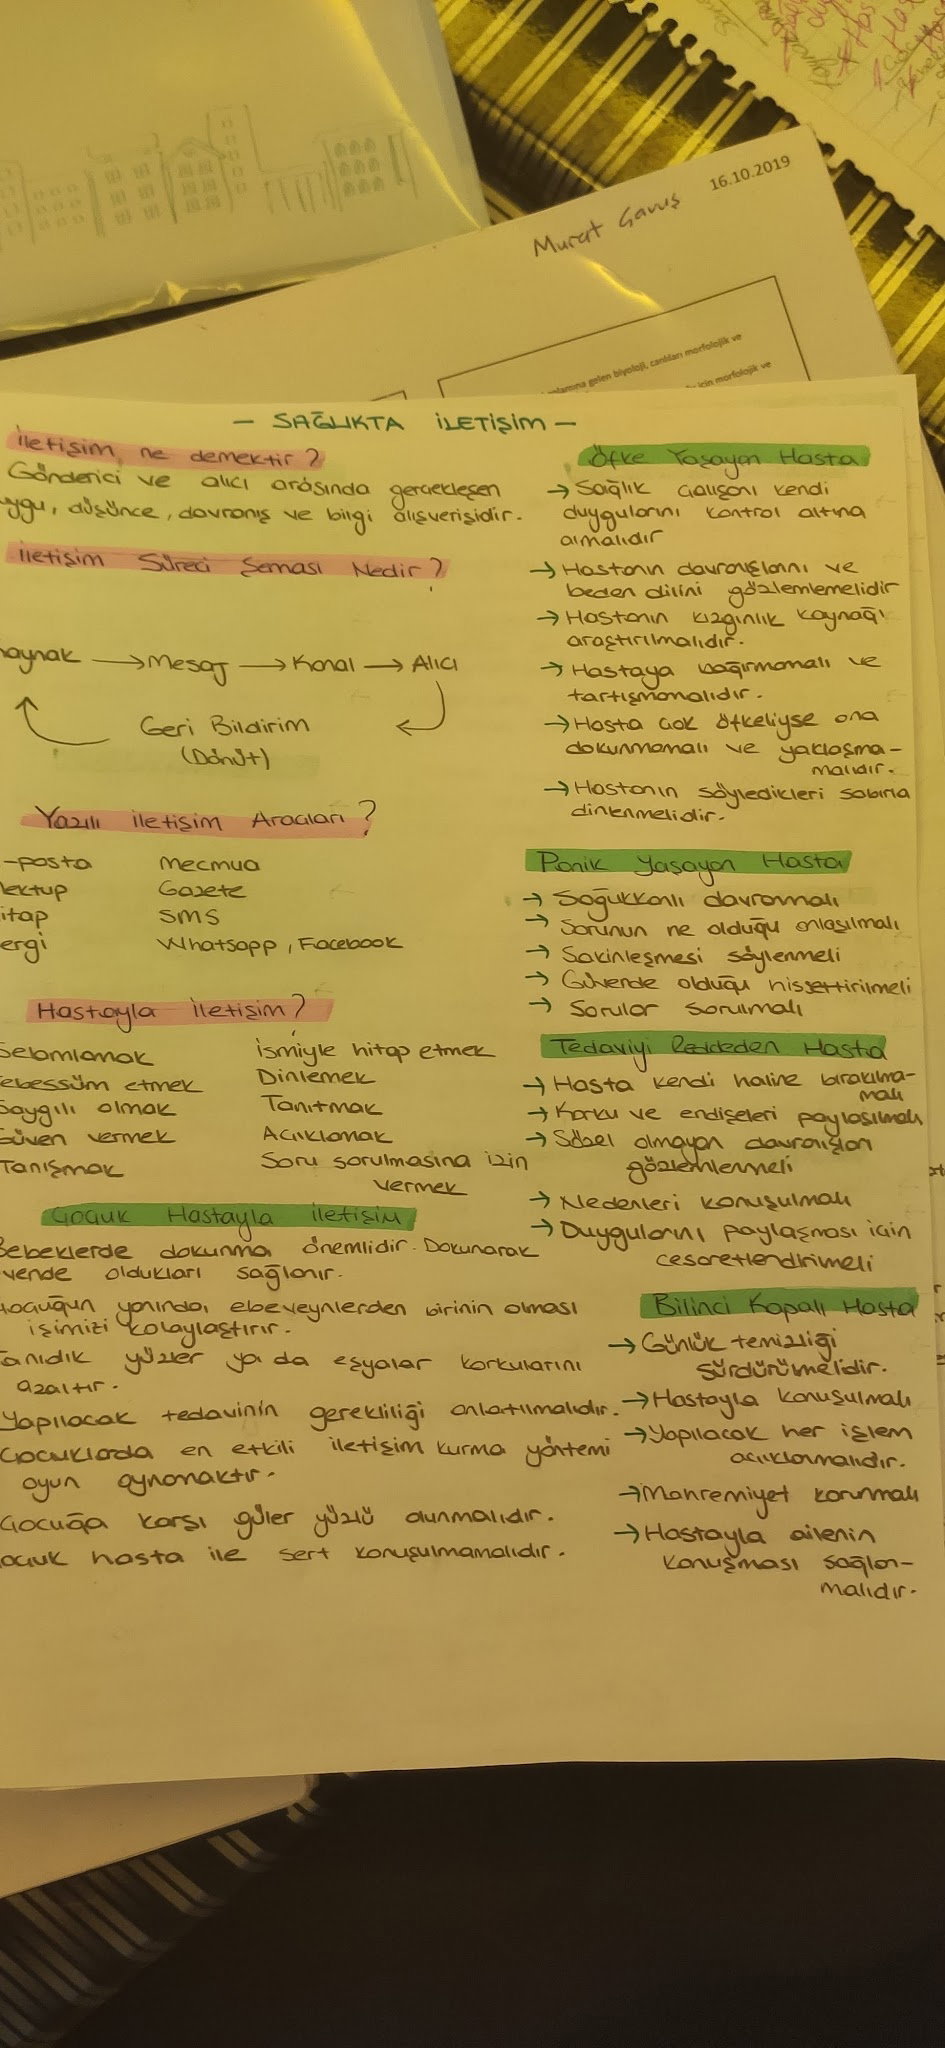 16.10.2019
Murat Çavuş
gelen biyoloji, canlıları morfolojik ve
için morfolojik ve
— SAĞLIKTA İLETİŞİM —
İletişim ne demektir?
Gönderici ve alıcı arasında gerçekleşen
uygu, düşünce, davranış ve bilgi alışverişidir.
İletişim Süreci Şeması Nedir?
aynak → Mesaj → Kanal → Alıcı
Geri Bildirim
(Dönüt)
Yazılı iletişim Araçları?
-posta Mecmua
ektup Gazete
itap SMS
ergi Whatsapp, Facebook
Hastayla iletişim?
Selamlamak ismiyle hitap etmek
ebessüm etmek Dinlemek
Saygılı olmak Tanıtmak
Güven vermek Açıklamak
Tanışmak Soru sorulmasına izin
vermek
Çocuk Hastayla iletişim
Bebeklerde dokunma önemlidir. Dokunarak
vende oldukları sağlanır.
ocuğun yanında, ebeveynlerden birinin olması
işimizi kolaylaştırır.
Tanıdık yüzler ya da eşyalar korkularını
azaltır.
Yapılacak tedavinin gerekliliği anlatılmalıdır.
Çocuklarda en etkili iletişim kurma yöntemi
oyun oynamaktır.
Çocuğa karşı güler yüzlü olunmalıdır.
ocuk hasta ile sert konuşulmamalıdır.
Öfke Yaşayan Hasta
→ Sağlık çalışanı kendi
duygularını kontrol altına
almalıdır
→ Hastanın davranışlarını ve
beden dilini gözlemlemelidir
→ Hastanın kızgınlık kaynağı
araştırılmalıdır.
→ Hastaya bağırmamalı ve
tartışmamalıdır.
→ Hasta çok öfkeliyse ona
dokunmamalı ve yaklaşma-
malıdır.
→ Hastanın söyledikleri sabırla
dinlenmelidir.
Panik Yaşayan Hasta
→ Soğukkanlı davranmalı
→ Sorunun ne olduğu anlaşılmalı
→ Sakinleşmesi söylenmeli
→ Güvende olduğu hissettirilmeli
→ Sorular sorulmalı
Tedaviyi Reddeden Hasta
→ Hasta kendi haline bırakılma-
malı
→ Korku ve endişeleri paylaşılmalı
→ Sözel olmayan davranışları
gözlemlenmeli
→ Nedenleri konuşulmalı
→ Duygularını paylaşması için
cesaretlendirilmeli
Bilinci Kapalı Hasta
→ Günlük temizliği
sürdürülmelidir.
→ Hastayla konuşulmalı
→ Yapılacak her işlem
açıklanmalıdır.
→ Mahremiyet korunmalı
→ Hastayla ailenin
konuşması sağlan-
malıdır.